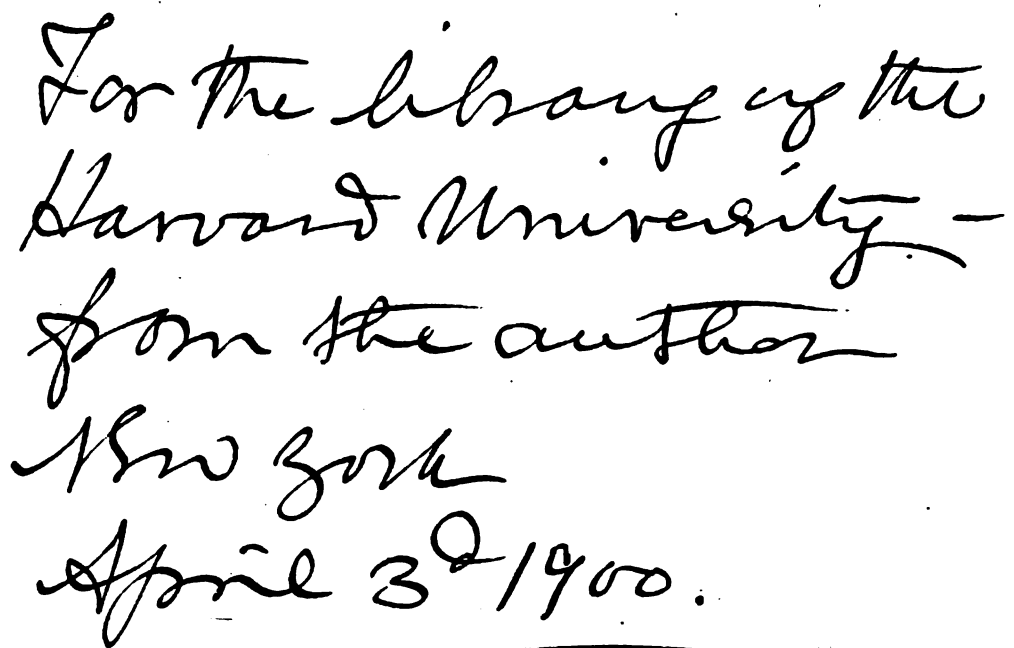 For the library of the
Harvard University –
from the author
New York
April 3d 1900.